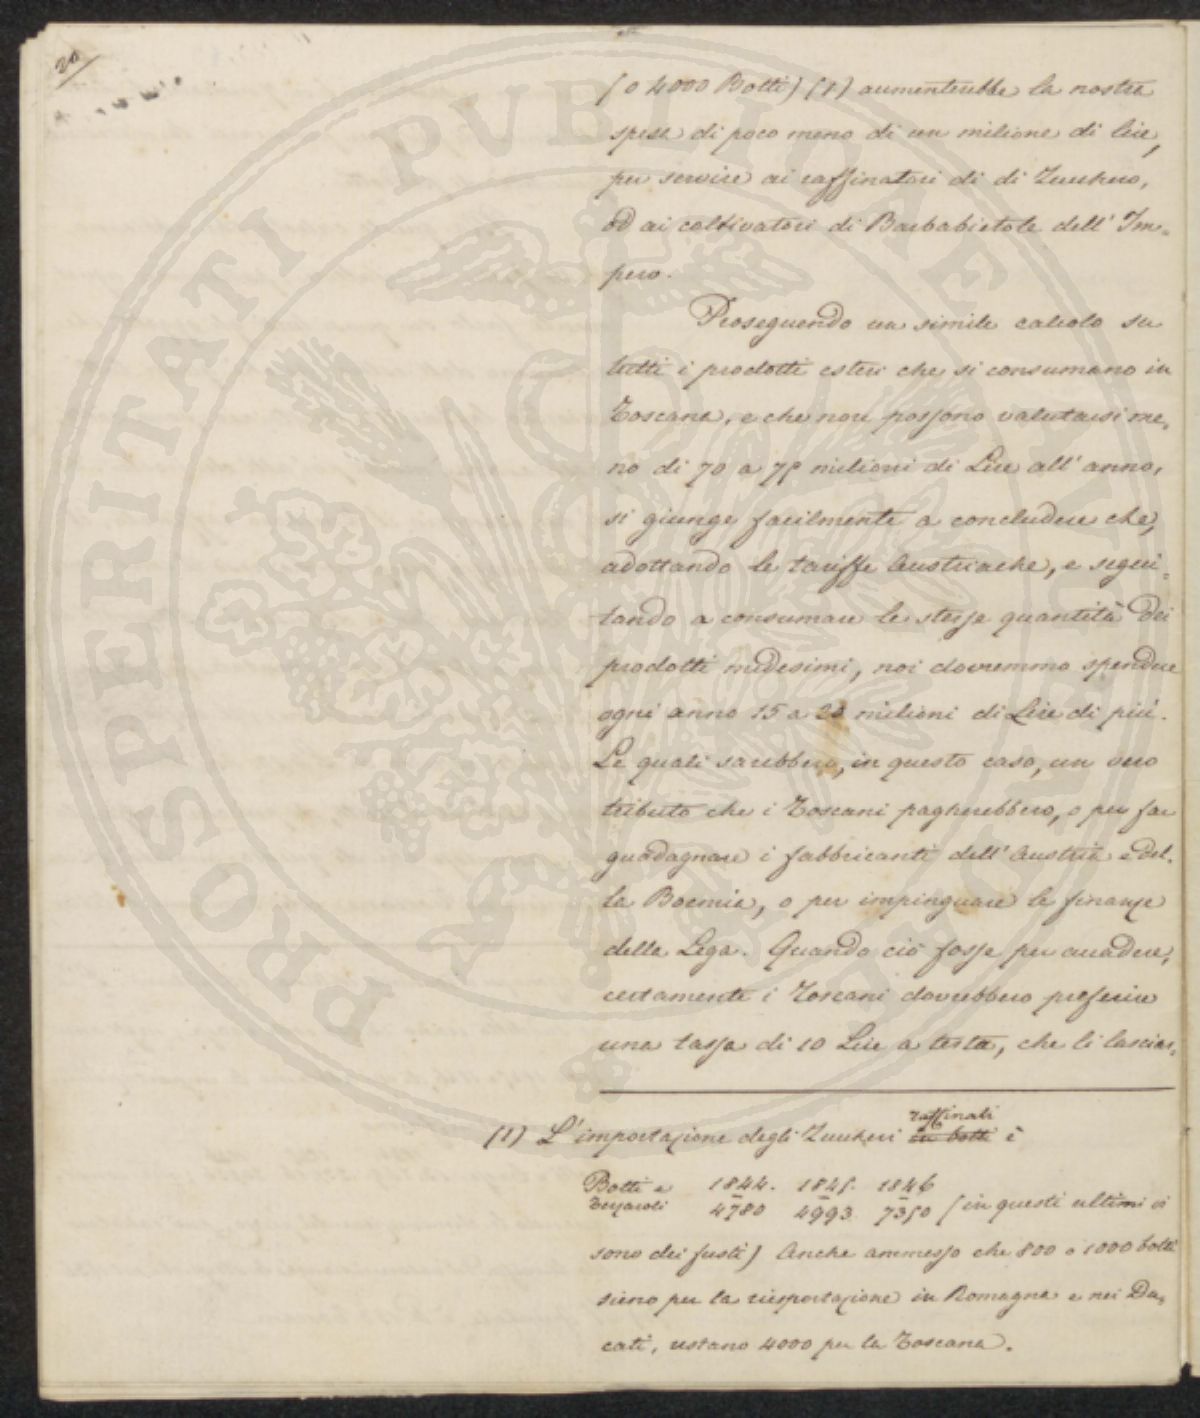 20
(o 4000 Botti) (1) aumenterebbe la nostra
spesa di poco meno di un milione di lire,
per servire ai raffinatori di di Zucchero,
od ai coltivatori di Barbabietole dell' Im=
pero.
Proseguendo un simile calcolo su
tutti i prodotti esteri che si consumano in
Toscana, e che non possono valutarsi me=
no di 70 a 75 milioni di Lire all' anno,
si giunge facilmente a concludere che,
adottando le tariffe Austriache, e segui=
tando a consumare le stesse quantità dei
prodotti medesimi, noi dovremmo spendere
ogni anno 15 a 20 milioni di Lire di più.
Le quali sarebbero, in questo caso, un vero
tributo che i Toscani pagherebbero, o per far
guadagnare i fabbricanti dell' Austria e del=
la Boemia, o per impinguare le finanze
della Lega. Quando ciò fosse per accadere,
certamente i Toscani dovrebbero preferire
una tassa di 10 Lire a testa, che li lascias=
raffinati
(1) L'importazione degli Zuccheri in botti è
Botti e 1844. 1845. 1846
Terzaroli 4780 4993 7350 (in questi ultimi vi
sono dei fusti) Anche ammesso che 800 o 1000 botti
sieno per la riesportazione in Romagna e nei Du=
cati, restano 4000 per la Toscana.
PROSPERITATI PVBLICAE